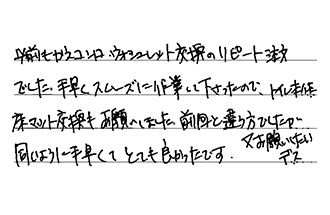 以前もガスコンロ、ウォシュレット交換のリピート注文
でした。手早くスムーズに作業して下さったので、トイレ本体
床マット交換もお願いしました。前回と違う方でしたが
同じように手早くてとても良かったです。又お願いしたい
デス